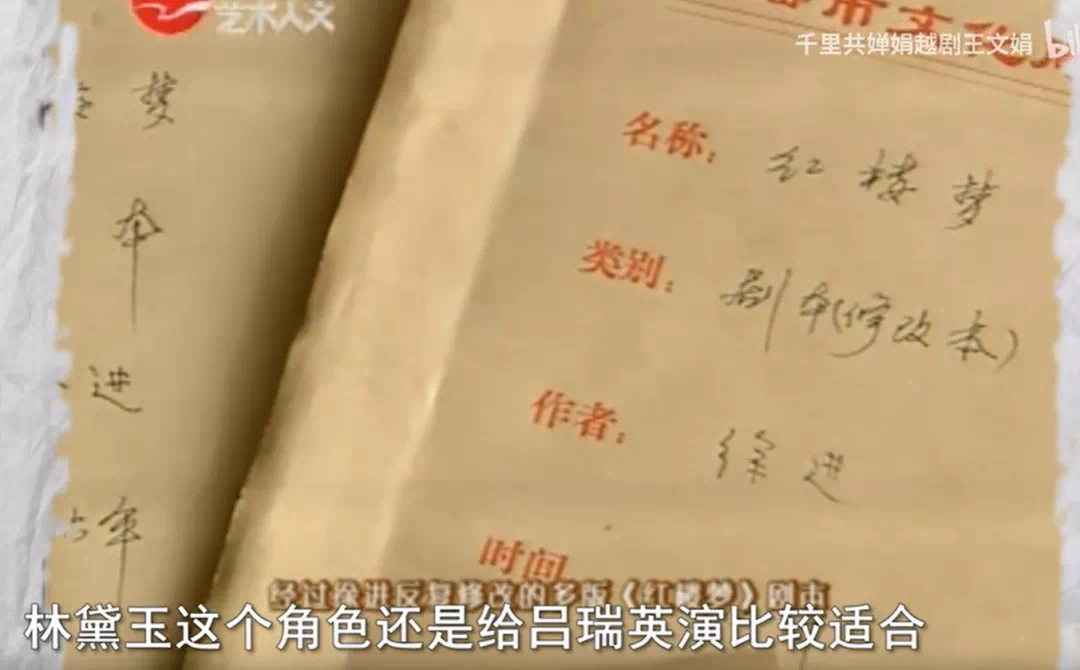 艺术人文
千里共婵娟越剧王文娟
梦
本
进
年
名称：红楼梦
类别：剧本(修改本)
作者：徐进
时间
经过徐进反复修改的多版《红楼梦》剧本
林黛玉这个角色还是给吕瑞英演比较适合